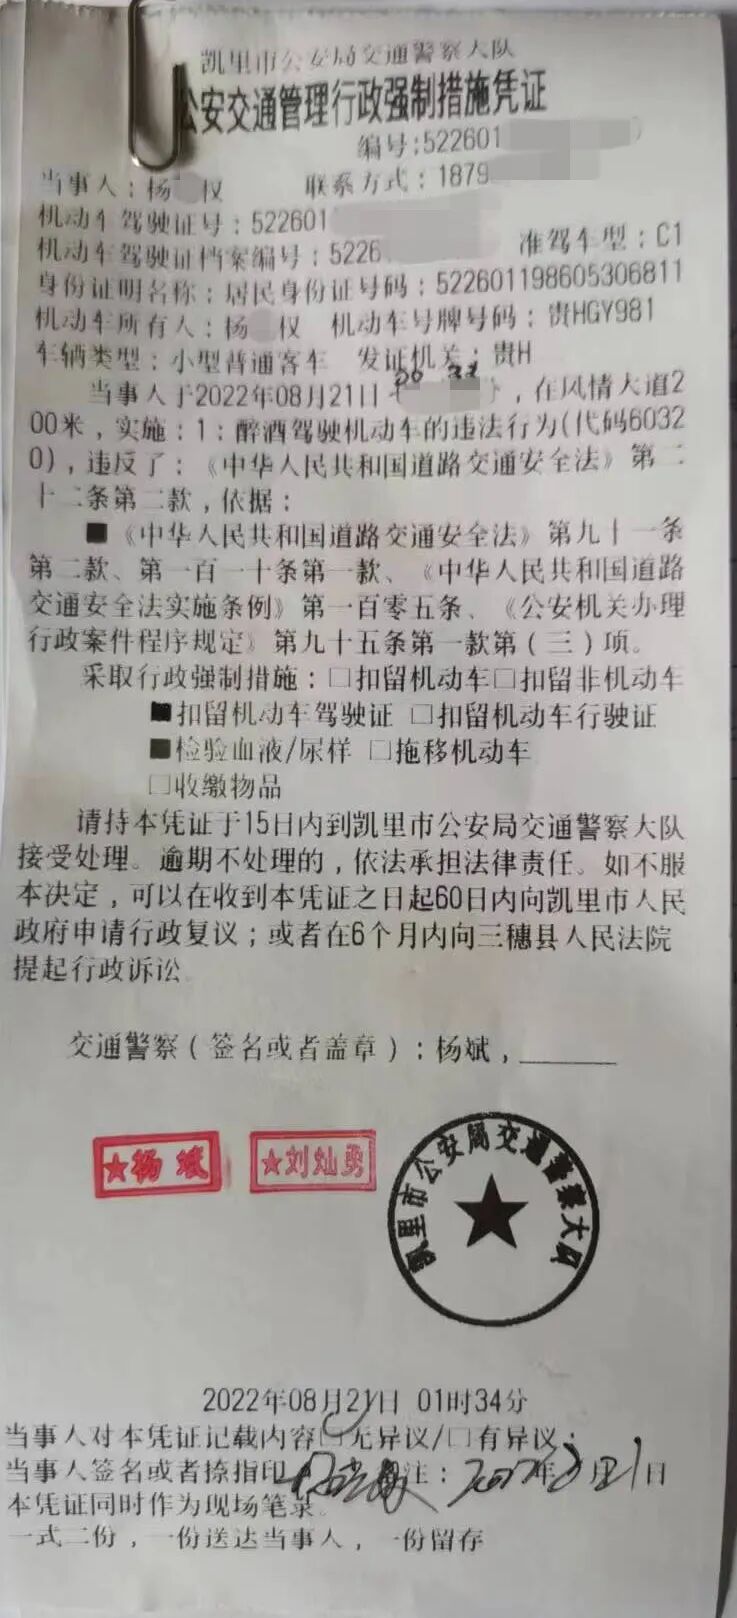 凯里市公安局交通警察大队
公安交通管理行政强制措施凭证
编号:522601
当事人:杨 权 联系方式:1879
机动车驾驶证号:522601
机动车驾驶证档案编号:5226 准驾车型:C1
身份证明名称:居民身份证号码:522601198605306811
机动车所有人:杨 权 机动车号牌号码:贵HGY981
车辆类型:小型普通客车 发证机关:贵H
当事人于2022年08月21日 分,在风情大道2
00米,实施:1:醉酒驾驶机动车的违法行为(代码6032
0),违反了:《中华人民共和国道路交通安全法》第二
十二条第二款,依据:
■《中华人民共和国道路交通安全法》第九十一条
第二款、第一百一十条第一款、《中华人民共和国道路
交通安全法实施条例》第一百零五条、《公安机关办理
行政案件程序规定》第九十五条第一款第(三)项。
采取行政强制措施:□扣留机动车□扣留非机动车
■扣留机动车驾驶证 □扣留机动车行驶证
■检验血液/尿样 □拖移机动车
□收缴物品
请持本凭证于15日内到凯里市公安局交通警察大队
接受处理。逾期不处理的,依法承担法律责任。如不服
本决定,可以在收到本凭证之日起60日内向凯里市人民
政府申请行政复议;或者在6个月内向三穗县人民法院
提起行政诉讼
交通警察(签名或者盖章):杨斌,
★杨斌 ★刘灿勇
凯里市公安局交通警察大队
2022年08月21日 01时34分
当事人对本凭证记载内容□无异议/□有异议:
当事人签名或者捺指印 注: 年8月21日
本凭证同时作为现场笔录。
一式二份,一份送达当事人,一份留存